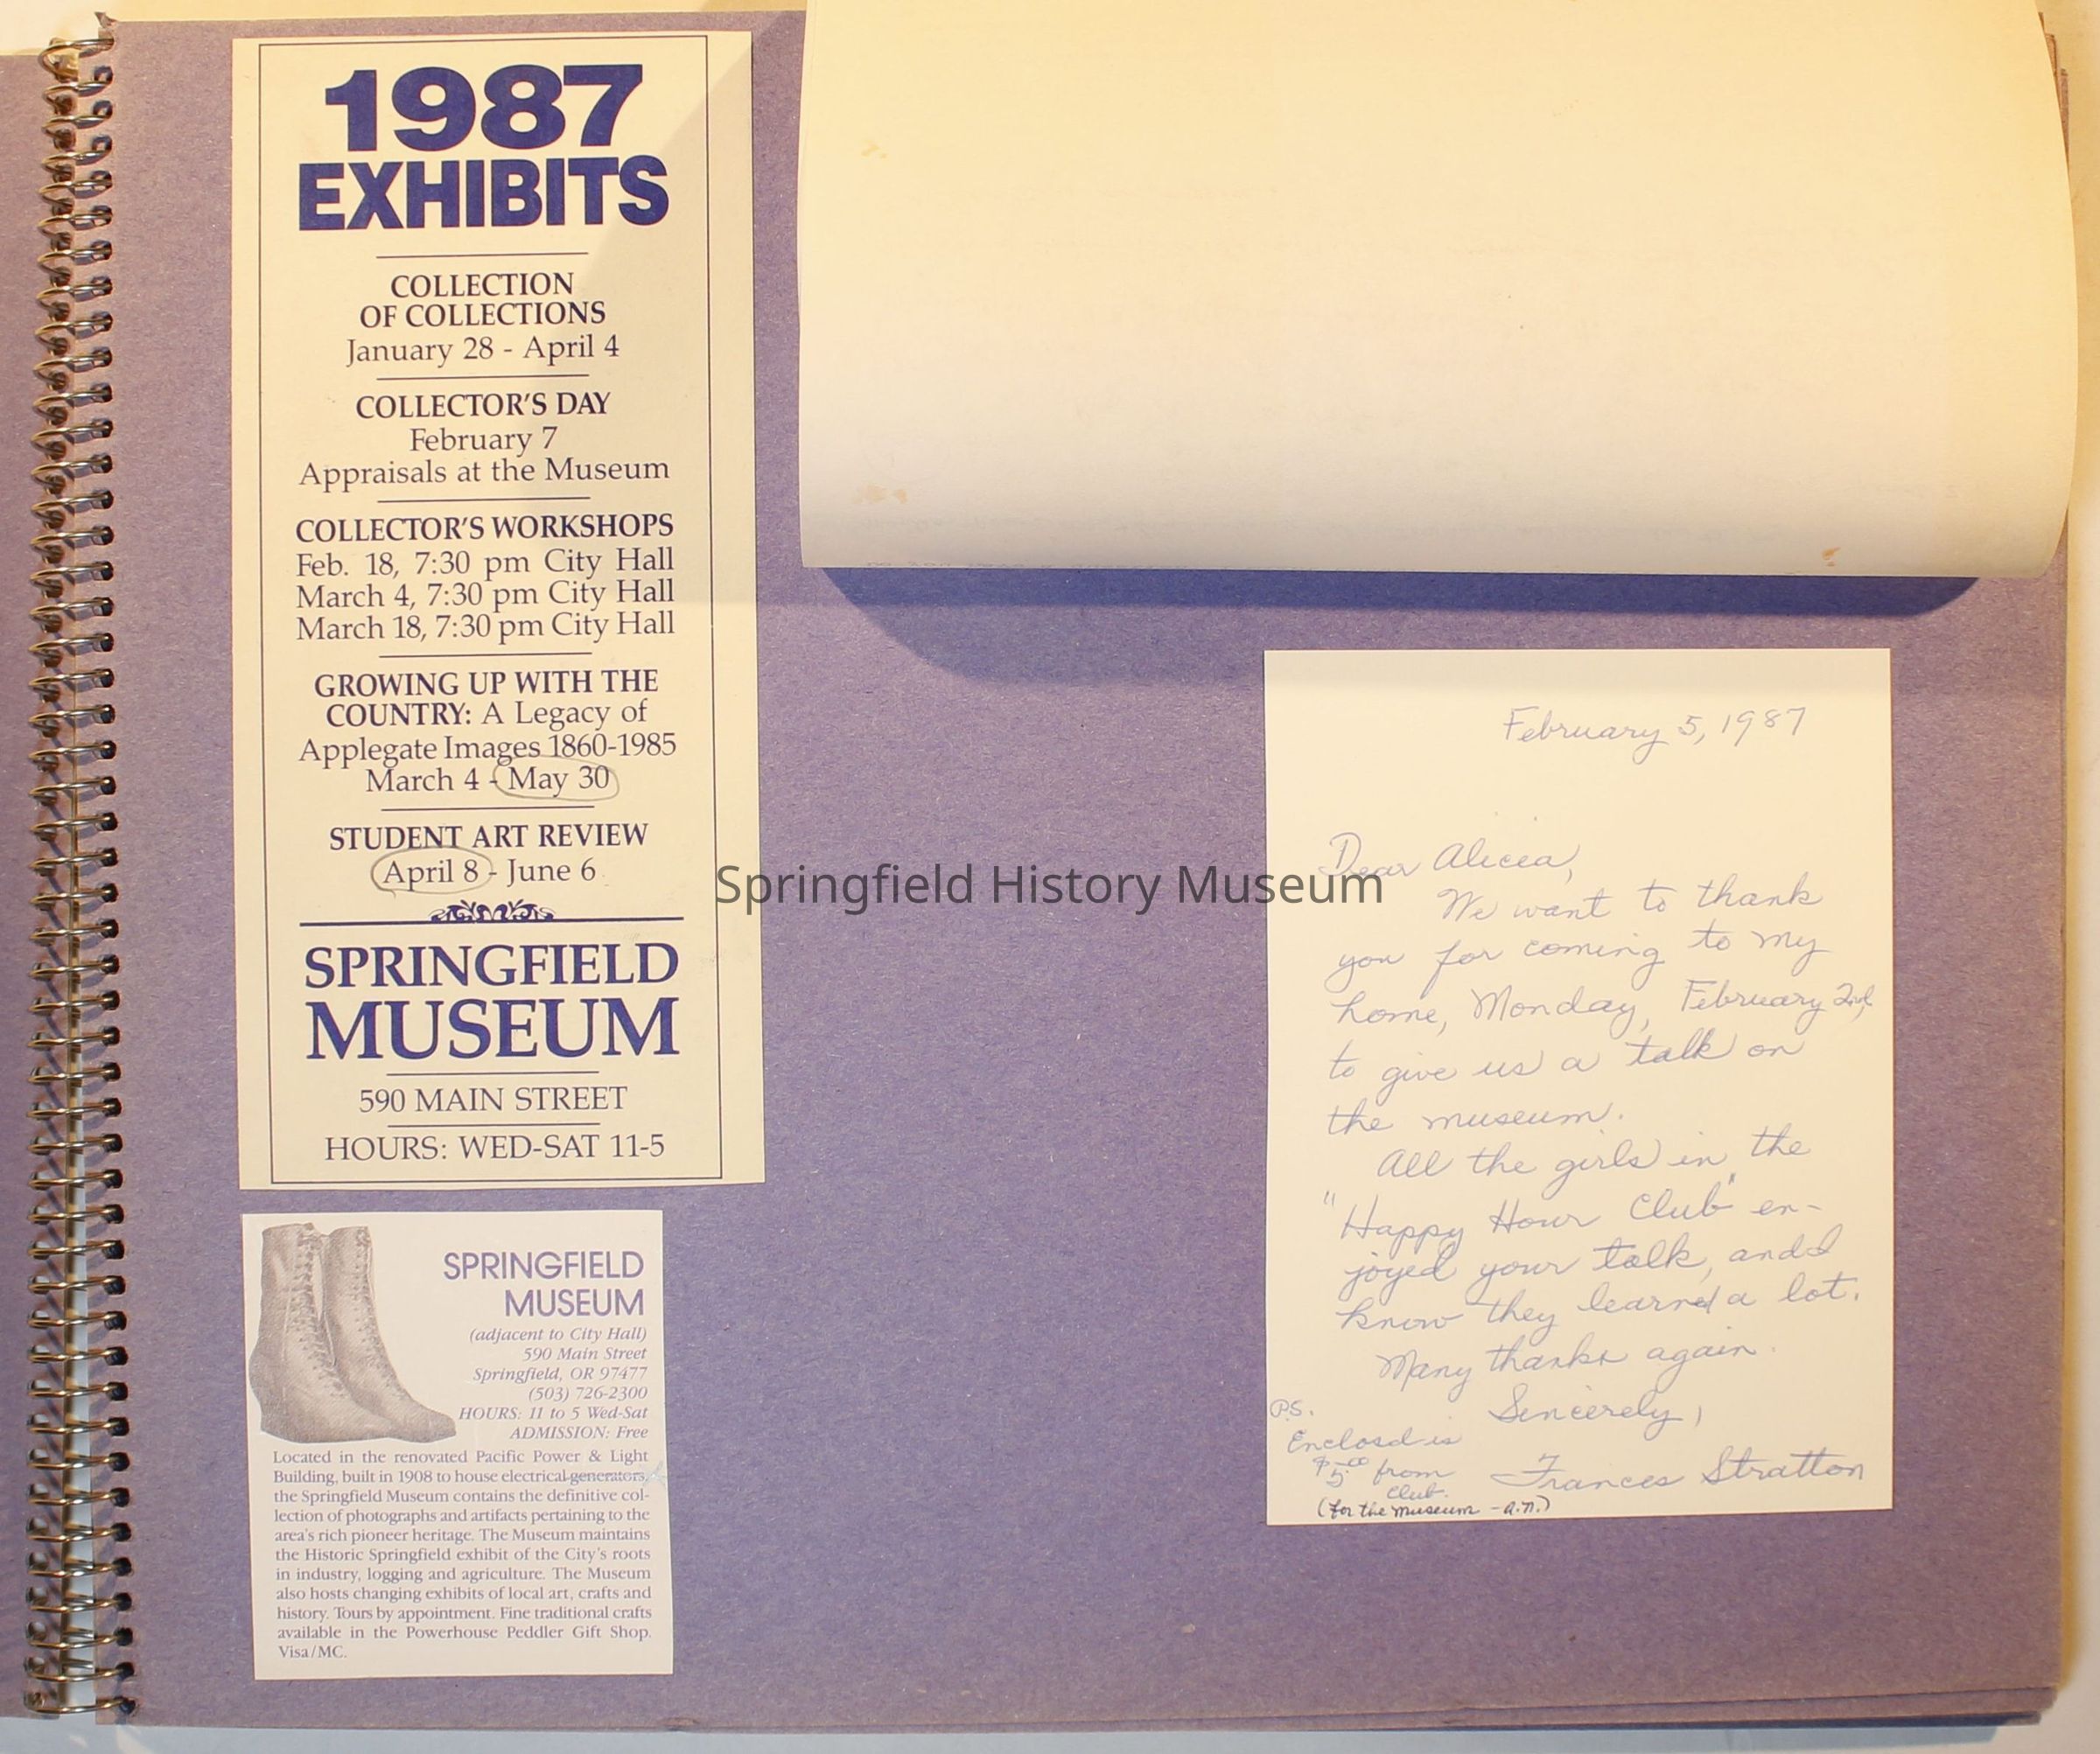 1987
EXHIBITS
COLLECTION
OF COLLECTIONS
January 28 - April 4
COLLECTOR'S DAY
February 7
Appraisals at the Museum
COLLECTOR'S WORKSHOPS
Feb. 18, 7:30 pm City Hall
March 4, 7:30 pm City Hall
March 18, 7:30 pm City Hall
GROWING UP WITH THE
COUNTRY: A Legacy of
Applegate Images 1860-1985
March 4 - May 30
STUDENT ART REVIEW
April 8 - June 6
SPRINGFIELD
MUSEUM
590 MAIN STREET
HOURS: WED-SAT 11-5
SPRINGFIELD
MUSEUM
(adjacent to City Hall)
590 Main Street
Springfield, OR 97477
(503) 726-2300
HOURS: 11 to 5 Wed-Sat
ADMISSION: Free
Located in the renovated Pacific Power & Light
Building, built in 1908 to house electrical generators,
the Springfield Museum contains the definitive col-
lection of photographs and artifacts pertaining to the
area's rich pioneer heritage. The Museum maintains
the Historic Springfield exhibit of the City's roots
in industry, logging and agriculture. The Museum
also hosts changing exhibits of local art, crafts and
history. Tours by appointment. Fine traditional crafts
available in the Powerhouse Peddler Gift Shop.
Visa/MC.
Springfield History Museum
February 5, 1987
Dear Alicia,
We want to thank
you for coming to my
home, Monday, February 2nd,
to give us a talk on
the museum.
All the girls in the
"Happy Hour Club" en-
joyed your talk, and I
know they learned a lot.
Many thanks again.
Sincerely,
Frances Stratton
P.S.
Enclosed is
$5.00 from
Club.
(for the museum - a.n.)